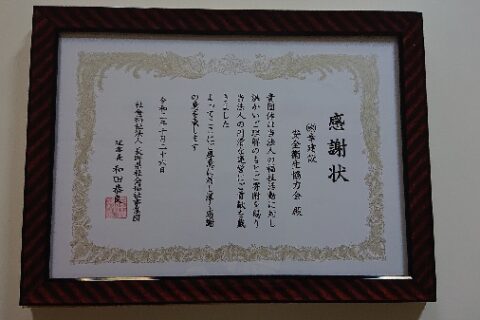 感謝状
㈱幸建設
安全衛生協力会 殿
貴団体は当法人の福祉活動に対し
深いご理解のもとご寄附を賜り
当法人の円滑な運営にご貢献を戴
きました
よってここにご厚志に対し深く感謝
の意を表します
令和二年十月二十八日
社会福祉法人 長崎県社会福祉事業団
理事長 和田